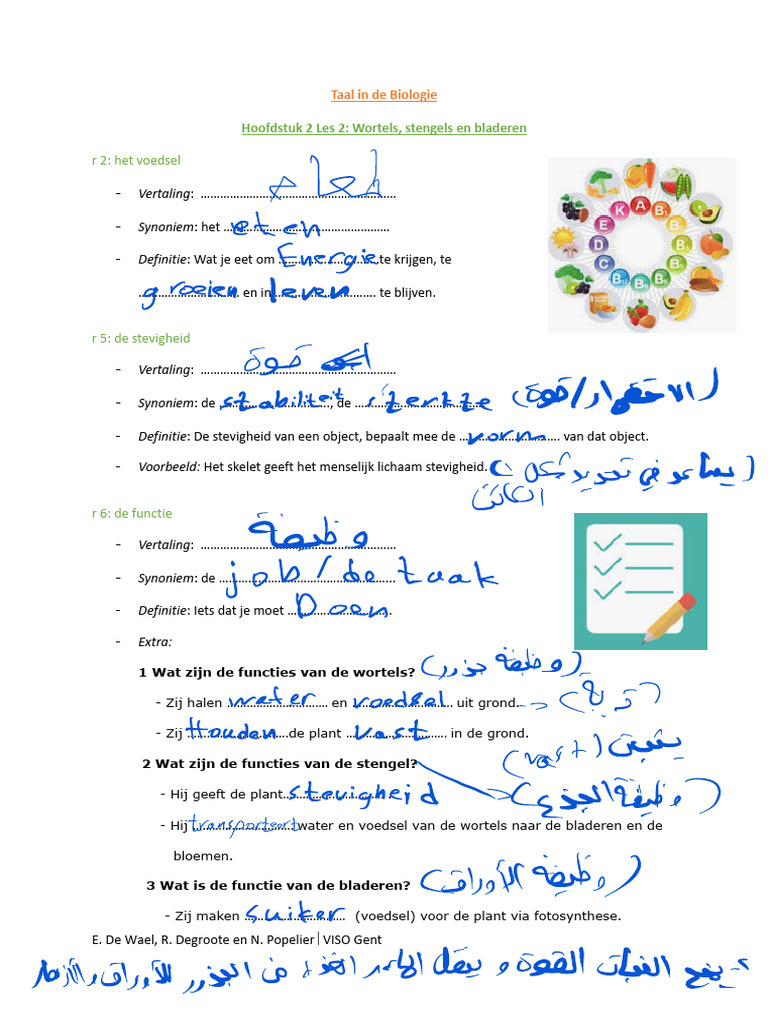 Taal in de Biologie
Hoofdstuk 2 Les 2: Wortels, stengels en bladeren
r 2: het voedsel
- Vertaling: طعام
- Synoniem: het eten
- Definitie: Wat je eet om Energie te krijgen, te
groeien en in leven te blijven.
r 5: de stevigheid
- Vertaling: قوة
- Synoniem: de stabiliteit, de sterkte (الاستقرار/قوة)
- Definitie: De stevigheid van een object, bepaalt mee de vorm van dat object.
- Voorbeeld: Het skelet geeft het menselijk lichaam stevigheid. (يساعد في تحديد شكل
الكائن)
r 6: de functie
- Vertaling: وظيفة
- Synoniem: de job / de taak
- Definitie: Iets dat je moet Doen.
- Extra:
1 Wat zijn de functies van de wortels? (وظيفة جذور)
- Zij halen water en voedsel uit grond. -> (تربة)
- Zij Houden de plant vast in de grond. (vast) يثبت
2 Wat zijn de functies van de stengel? (وظيفة الجذع)
- Hij geeft de plant stevigheid
- Hij transporteert water en voedsel van de wortels naar de bladeren en de
bloemen.
3 Wat is de functie van de bladeren? (وظيفة الأوراق)
- Zij maken suiker (voedsel) voor de plant via fotosynthese.
E. De Wael, R. Degroote en N. Popelier | VISO Gent
2- النبات القوة و ينقل من الجذور للأوراق والأزهار
K A B1 B2 B3 B6 B9 B12 C D E